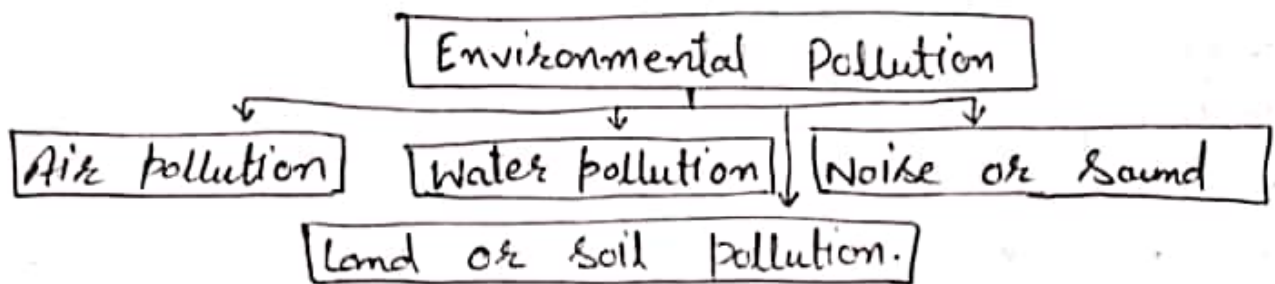 Environmental Pollution
Air pollution
Water pollution
Noise or Sound
Land or soil pollution.